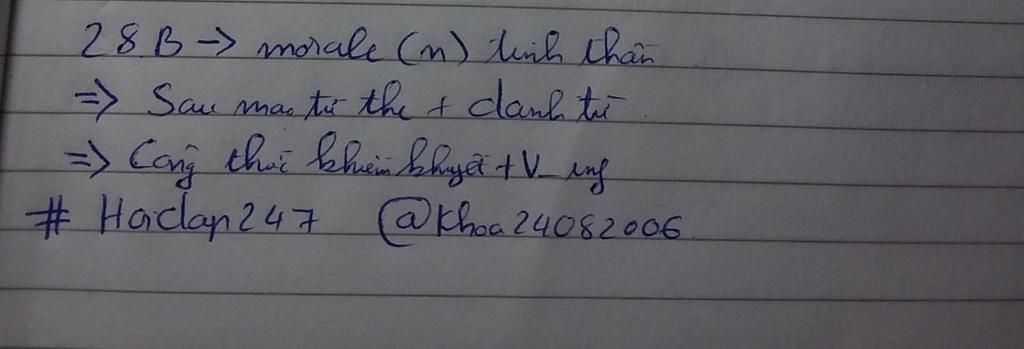 28.B → morale (n) tinh thần
=> Sau mạo từ the + danh từ
=> Công thức khiếm khuyết + V_ing
# Hoidap247 @khoa24082006